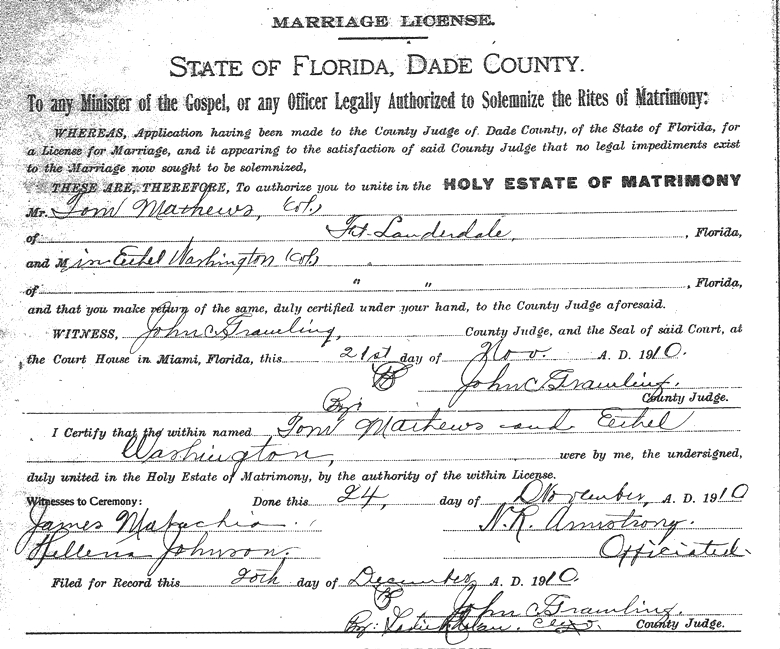 MARRIAGE LICENSE.
STATE OF FLORIDA, DADE COUNTY.
To any Minister of the Gospel, or any Officer Legally Authorized to Solemnize the Rites of Matrimony:
WHEREAS, Application having been made to the County Judge of Dade County, of the State of Florida, for
a License for Marriage, and it appearing to the satisfaction of said County Judge that no legal impediments exist
to the Marriage now sought to be solemnized,
THESE ARE, THEREFORE, To authorize you to unite in the HOLY ESTATE OF MATRIMONY
Mr. Tom Mathews, Col,
of Ft. Lauderdale, , Florida,
and Miss Ethel Washington Col,
of " " , Florida,
and that you make return of the same, duly certified under your hand, to the County Judge aforesaid.
WITNESS, John C. Gramling, County Judge, and the Seal of said Court, at
the Court House in Miami, Florida, this 21st day of Nov. A. D. 1910.
John C. Gramling.
By: County Judge.
I Certify that the within named Tom Mathews and Ethel
Washington, were by me, the undersigned,
duly united in the Holy Estate of Matrimony, by the authority of the within License.
Witnesses to Ceremony: Done this 24, day of November, A. D. 1910
James N. R. Armstrong.
Hellena Johnson. Officiated.
Filed for Record this 20th day of December A. D. 1910.
John C. Gramling.
By: County Judge.